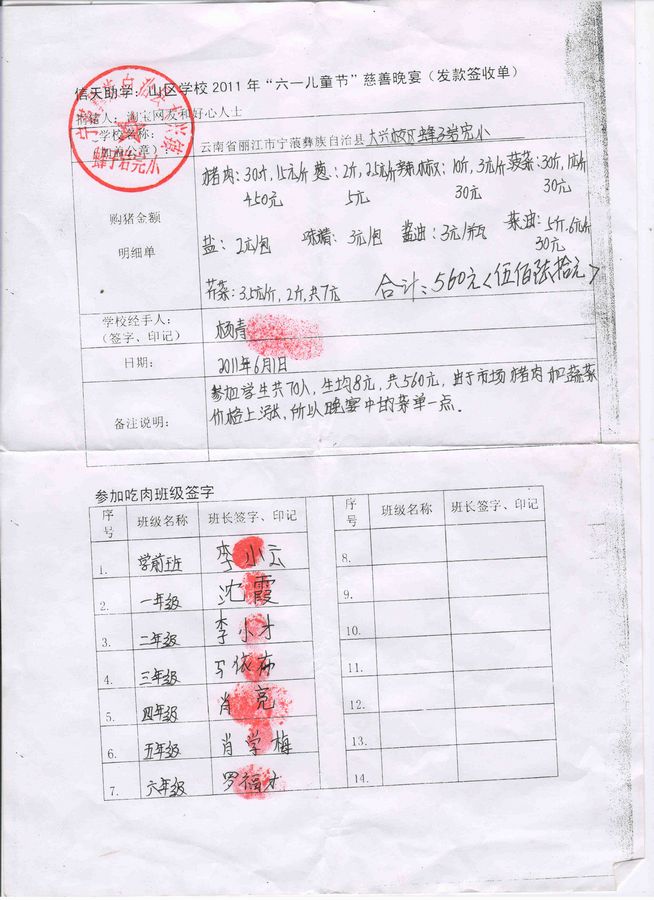 信天助学：山区学校2011年“六一儿童节”慈善晚宴（发款签收单）
捐猪人：淘宝网友和好心人士
学校名称：
（加盖公章）
云南省丽江市宁蒗彝族自治县大兴校区蜂子岩完小
蜂子岩完小
购猪金额
明细单
猪肉：30斤，15元/斤 葱：2斤，2.5元/斤 辣椒：10斤，3元/斤 菠菜：30斤，1元/斤
450元 5元 30元 30元
盐：2元/包 味精：3元/包 酱油：3元/瓶 菜油：5斤，6元/斤
30元
芹菜：3.5元/斤，2斤，共7元 合计：560元<伍佰陆拾元>
学校经手人：
（签字、印记）
杨青
日期：
2011年6月1日
备注说明：
参加学生共70人，生均8元，共560元，由于市场猪肉和蔬菜
价格上涨，所以晚宴中的菜单一点．
参加吃肉班级签字
序号 班级名称 班长签字、印记 序号 班级名称 班长签字、印记
1. 学前班 李小云 8.
2. 一年级 沈霞 9.
3. 二年级 李小才 10.
4. 三年级 马依布 11.
5. 四年级 肖亮 12.
6. 五年级 肖学梅 13.
7. 六年级 罗福才 14.